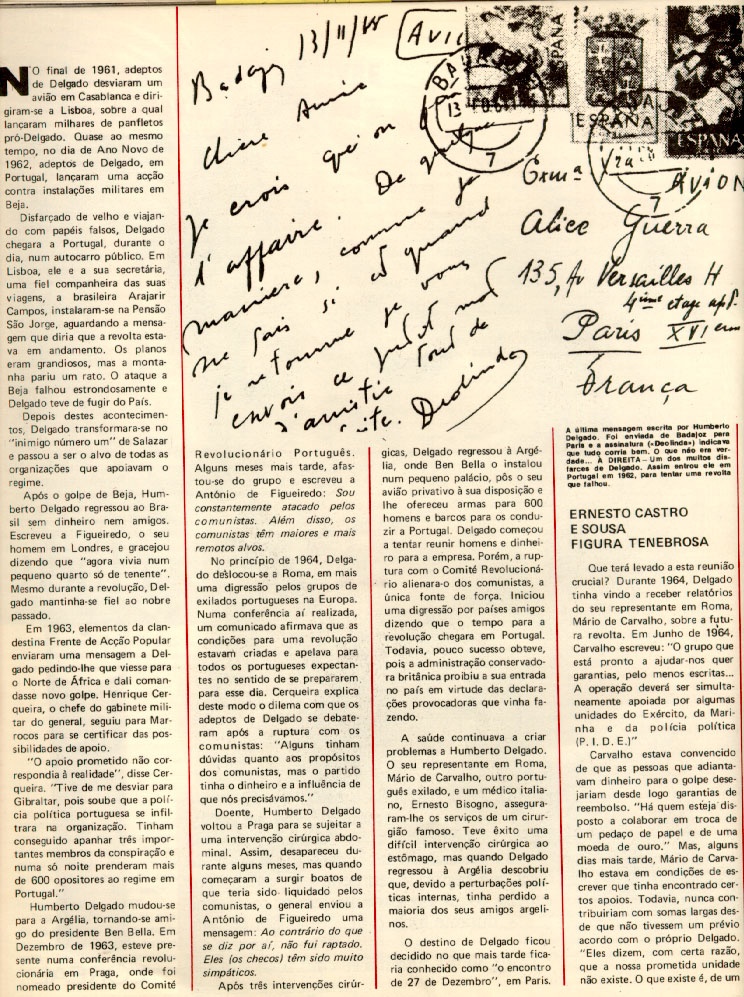 NO final de 1961, adeptos
de Delgado desviaram um
avião em Casablanca e diri-
giram-se a Lisboa, sobre a qual
lancaram milhares de panfletos
pró-Delgado. Quase ao mesmo
tempo, no dia de Ano Novo de
1962, adeptos de Delgado, em
Portugal, lançaram uma acção
contra instalações militares em
Beja.
Disfarçado de velho e viajan-
do com papéis falsos, Delgado
chegara a Portugal, durante o
dia, num autocarro público. Em
Lisboa, ele e a sua secretária,
uma fiel companheira das suas
viagens, a brasileira Arajarir
Campos, instalaram-se na Pensão
São Jorge, aguardando a mensa-
gem que diria que a revolta esta-
va em andamento. Os planos
eram grandiosos, mas a monta-
nha pariu um rato. O ataque a
Beja falhou estrondosamente e
Delgado teve de fugir do País.
Depois destes acontecimen-
tos, Delgado transformara-se no
"inimigo número um" de Salazar
e passou a ser o alvo de todas as
organizações que apoiavam o
regime.
Após o golpe de Beja, Hum-
berto Delgado regressou ao Bra-
sil sem dinheiro nem amigos.
Escreveu a Figueiredo, o seu
homem em Londres, e gracejou
dizendo que "agora vivia num
pequeno quarto só de tenente".
Mesmo durante a revolução, Del-
gado mantinha-se fiel ao nobre
passado.
Em 1963, elementos da clan-
destina Frente de Acção Popular
enviaram uma mensagem a Del-
gado pedindo-lhe que viesse para
o Norte de África e dali coman-
dasse novo golpe. Henrique Cer-
queira, o chefe do gabinete mili-
tar do general, seguiu para Mar-
rocos para se certificar das pos-
sibilidades de apoio.
"O apoio prometido não cor-
respondia à realidade", disse Cer-
queira. "Tive de me desviar para
Gibraltar, pois soube que a polí-
cia política portuguesa se infil-
trara na organização. Tinham
conseguido apanhar três impor-
tantes membros da conspiração e
numa só noite prenderam mais
de 600 opositores ao regime em
Portugal."
Humberto Delgado mudou-se
para a Argélia, tornando-se ami-
go do presidente Ben Bella. Em
Dezembro de 1963, esteve pre-
sente numa conferência revolu-
cionária em Praga, onde foi
nomeado presidente do Comité
Badajoz 13/II/65
Chère Amie
je crois qui on
l'affaire. De
manière, comme je
ne sais si et quand
je retourne je vous
envois ce petit mot
d'amitié tout de
suite. Deolinda
BADAJOZ
13
7
ESPAÑA
ESPAÑA
ESPAÑA
7
AVION
Exmª
Alice Guerra
135, Av Versailles H
4ième etage apt.
Paris XVI em
França
A última mensagem escrita por Humberto
Delgado. Foi enviada de Badajoz para
Paris e a assinatura («Deolinda») indicava
que tudo corria bem. O que não era ver-
dade... À DIREITA — Um dos muitos dis-
farces de Delgado. Assim entrou ele em
Portugal em 1962, para tentar uma revolta
que falhou.
Revolucionário Português.
Alguns meses mais tarde, afas-
tou-se do grupo e escreveu a
António de Figueiredo: Sou
constantemente atacado pelos
comunistas. Além disso, os
comunistas têm maiores e mais
remotos alvos.
No princípio de 1964, Delga-
do deslocou-se a Roma, em mais
uma digressão pelos grupos de
exilados portugueses na Europa.
Numa conferência aí realizada,
um comunicado afirmava que as
condições para uma revolução
estavam criadas e apelava para
todos os portugueses expectan-
tes no sentido de se prepararem
para esse dia. Cerqueira explica
deste modo o dilema com que os
adeptos de Delgado se debate-
ram após a ruptura com os
comunistas: "Alguns tinham
dúvidas quanto aos propósitos
dos comunistas, mas o partido
tinha o dinheiro e a influência de
que nós precisávamos."
Doente, Humberto Delgado
voltou a Praga para se sujeitar a
uma intervenção cirúrgica abdo-
minal. Assim, desapareceu du-
rante alguns meses, mas quando
começaram a surgir boatos de
que teria sido liquidado pelos
comunistas, o general enviou a
António de Figueiredo uma
mensagem: Ao contrário do que
se diz por aí, não fui raptado.
Eles (os checos) têm sido muito
simpáticos.
Após três intervenções cirúr-
gicas, Delgado regressou à Argé-
lia, onde Ben Bella o instalou
num pequeno palácio, pôs o seu
avião privativo à sua disposição e
lhe ofereceu armas para 600
homens e barcos para os condu-
zir a Portugal. Delgado começou
a tentar reunir homens e dinhei-
ro para a empresa. Porém, a rup-
tura com o Comité Revolucioná-
rio alienara-o dos comunistas, a
única fonte de força. Iniciou
uma digressão por países amigos
dizendo que o tempo para a
revolução chegara em Portugal.
Todavia, pouco sucesso obteve,
pois a administração conservado-
ra britânica proibiu a sua entrada
no país em virtude das declara-
ções provocadoras que vinha fa-
zendo.
A saúde continuava a criar
problemas a Humberto Delgado.
O seu representante em Roma,
Mário de Carvalho, outro portu-
guês exilado, e um médico italia-
no, Ernesto Bisogno, assegura-
ram-lhe os serviços de um cirur-
gião famoso. Teve êxito uma
difícil intervenção cirúrgica ao
estômago, mas quando Delgado
regressou à Argélia descobriu
que, devido a perturbações polí-
ticas internas, tinha perdido a
maioria dos seus amigos argeli-
nos.
O destino de Delgado ficou
decidido no que mais tarde fica-
ria conhecido como "o encontro
de 27 de Dezembro", em Paris.
ERNESTO CASTRO
E SOUSA
FIGURA TENEBROSA
Que terá levado a esta reunião
crucial? Durante 1964, Delgado
tinha vindo a receber relatórios
do seu representante em Roma,
Mário de Carvalho, sobre a futu-
ra revolta. Em Junho de 1964,
Carvalho escreveu: "O grupo que
está pronto a ajudar-nos quer
garantias, pelo menos escritas...
A operação deverá ser simulta-
neamente apoiada por algumas
unidades do Exército, da Mari-
nha e da polícia política
(P. I. D. E.)"
Carvalho estava convencido
de que as pessoas que adianta-
vam dinheiro para o golpe dese-
jariam desde logo garantias de
reembolso. "Há quem esteja dis-
posto a colaborar em troca de
um pedaço de papel e de uma
moeda de ouro." Mas, alguns
dias mais tarde, Mário de Carva-
lho estava em condições de es-
crever que tinha encontrado cer-
tos apoios. Todavia, nunca con-
tribuiriam com somas largas des-
de que não tivessem um prévio
acordo com o próprio Delgado.
"Eles dizem, com certa razão,
que a nossa prometida unidade
não existe. O que existe é, de um